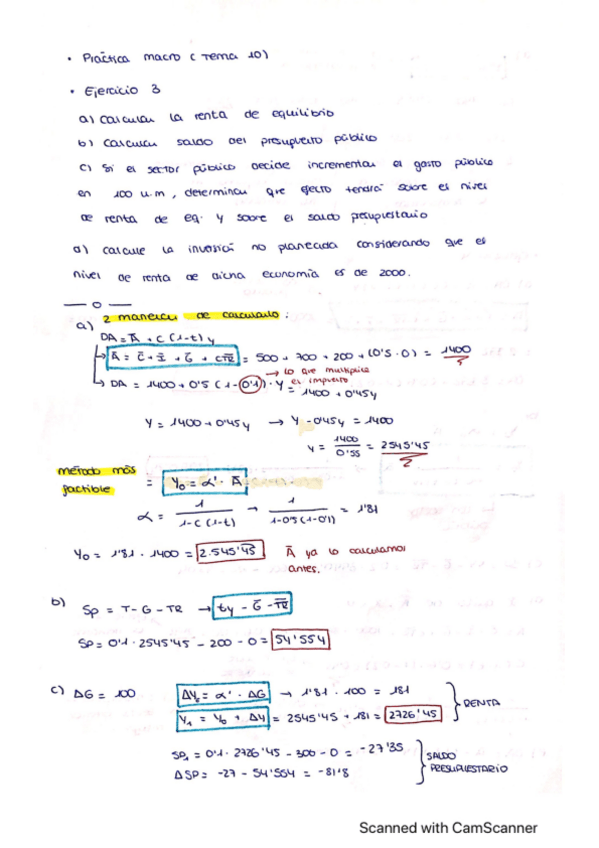 • Práctica macro (Tema 10)
• Ejercicio 3
a) calcular la renta de equilibrio
b) calcular saldo del presupuesto público
c) Si el sector público decide incrementar el gasto público
en 100 u.m, determinar que efecto tendrá sobre el nivel
de renta de eq. y sobre el saldo presupuestario
d) calcule la inversión no planeada considerando que el
nivel de renta de dicha economía es de 2000.
— o —
a) 2 maneras de calcularlo:
DA = Ā + C (1-t) y
Ā = C̄ + Ī + Ḡ + cTR̄ = 500 + 700 + 200 + (0'5 · 0) = 1400
→ lo que multiplica
es impuesto
DA = 1400 + 0'5 (1 - 0'1) · Y = 1400 + 0'45y
Y = 1400 + 0'45y → Y - 0'45y = 1400
y = 1400 / 0'55 = 2545'45
método más
factible = Y₀ = α' · Ā
α = 1 / 1-c (1-t) → 1 / 1-0'5 (1-0'1) = 1'81
Y₀ = 1'81 · 1400 = 2.545'45 Ā ya lo calculamos
antes.
b) SP = T - G - TR → ty - Ḡ - TR̄
SP = 0'1 · 2545'45 - 200 - 0 = 54'554
c) ΔG = 100 ΔY₀ = α' · ΔG → 1'81 · 100 = 181
Y₁ = Y₀ + ΔY = 2545'45 + 181 = 2726'45 RENTA
SP₁ = 0'1 · 2726'45 - 300 - 0 = -27'35
ΔSP = -27 - 54'554 = -81'8
SALDO
PRESUPUESTARIO
Scanned with CamScanner